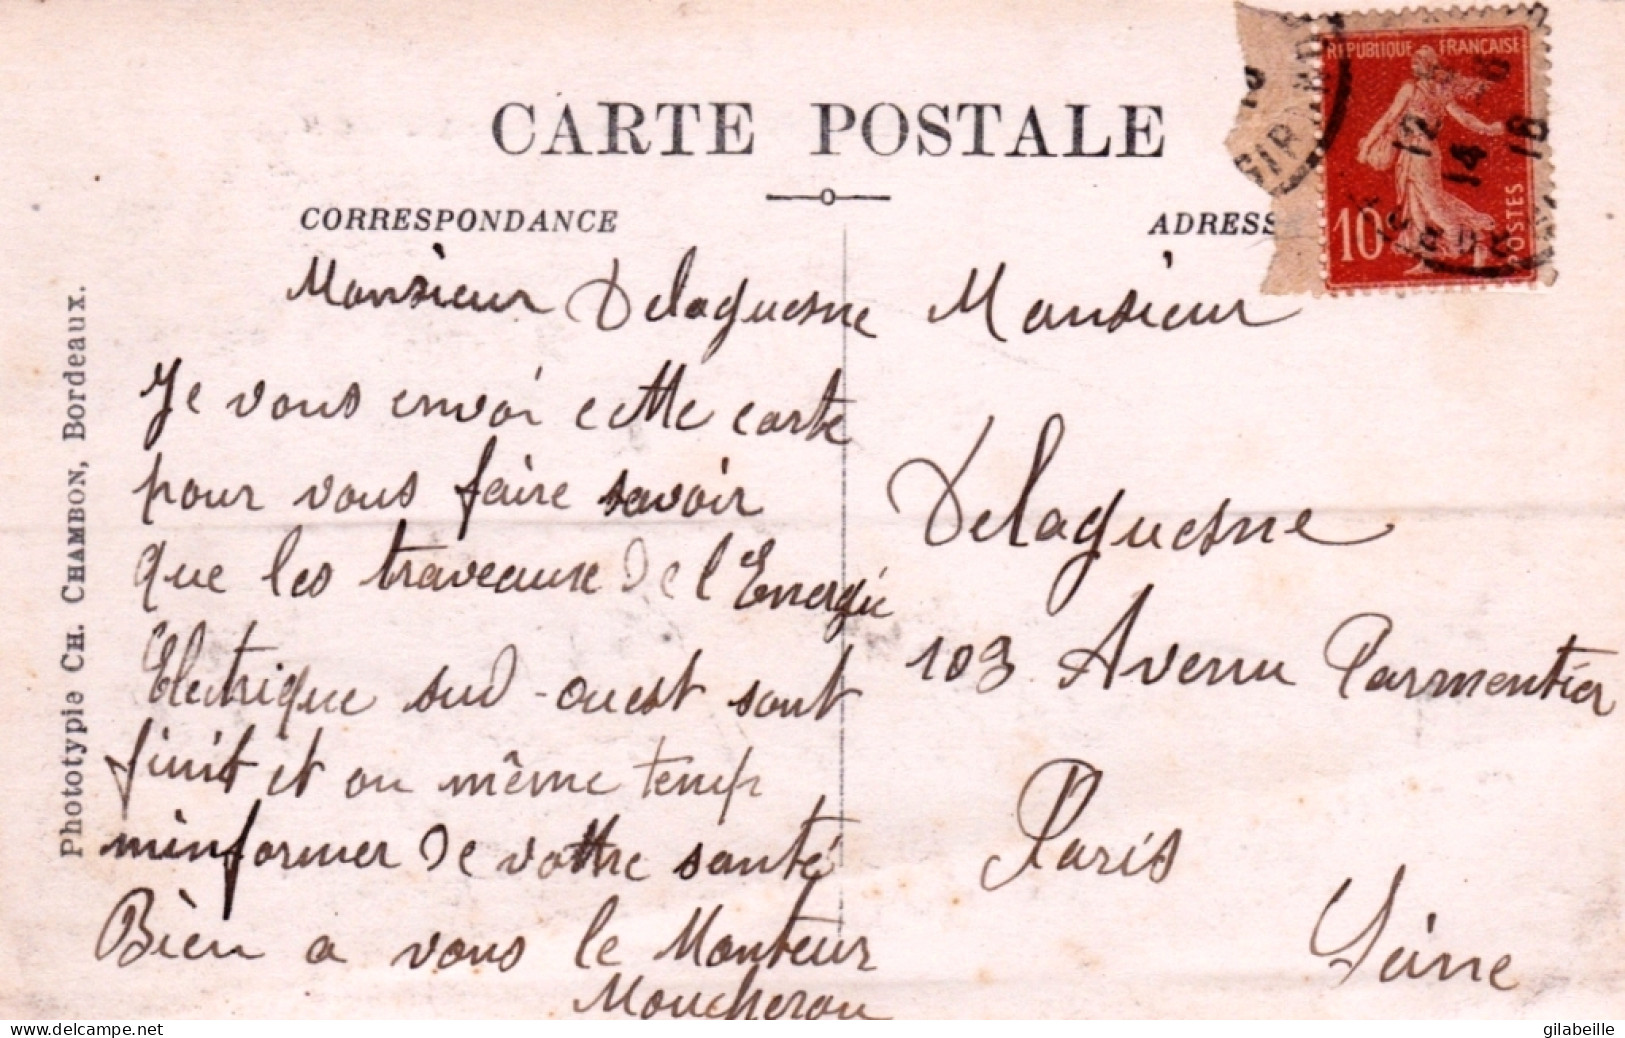 CARTE POSTALE
CORRESPONDANCE
Monsieur Delaguesne
Je vous envoi cette carte
pour vous faire savoir
que les traveaux de l'Energie
Electrique sud-ouest sont
finit et on même temp
minformer de vottre santé
Bien a vous le Monteur
Moucherau
ADRESS
Monsieur
Delaguesne
103 Avenu Parmentier
Paris
Seine
REPUBLIQUE FRANÇAISE
10
POSTES
GIRONDE
12
14
18
Phototypie CH. CHAMBON, Bordeaux.
www.delcampe.net
gilabeille